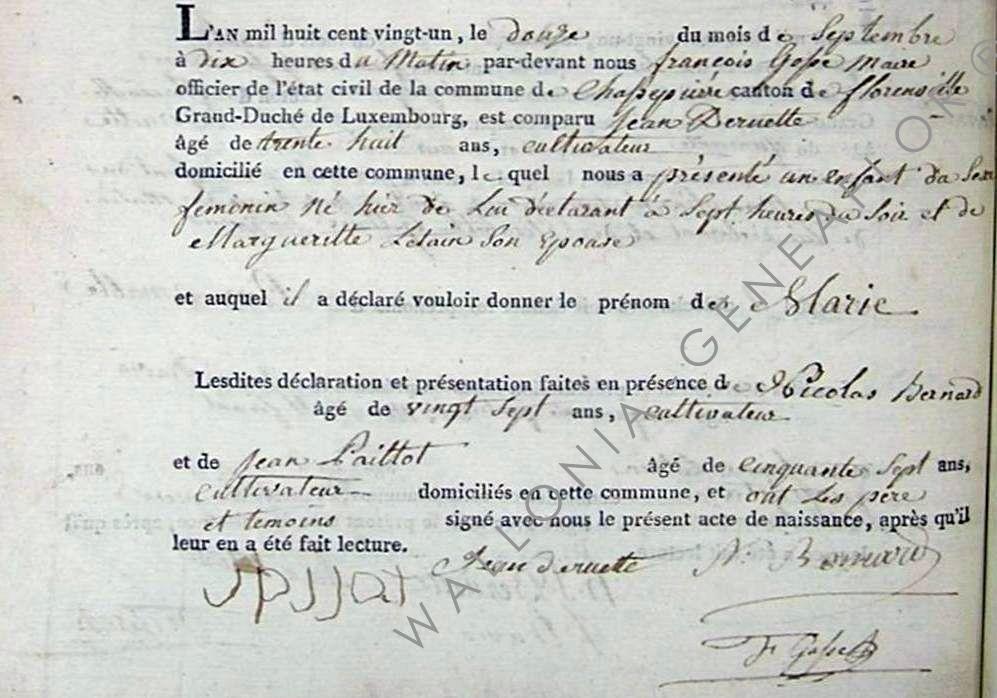 L'AN mil huit cent vingt-un, le douze du mois de Septembre
à dix heures du Matin par-devant nous françois Gosse Maire
officier de l'état civil de la commune de Chassepierre canton de florenville
Grand-Duché de Luxembourg, est comparu Jean Deruette
âgé de trente huit ans, cultivateur
domicilié en cette commune, le quel nous a présenté un enfant du Sexe
feminin né hier de Lui déclarant à Sept heures du Soir et de
Margueritte Létain Son Epouse
et auquel il a déclaré vouloir donner le prénom de Marie
Lesdites déclaration et présentation faites en présence de Nicolas Bernard
âgé de vingt Sept ans, cultivateur
et de Jean
âgé de Cinquante Sept ans,
cultivateur domiciliés en cette commune, et ont Les pere
et temoins signé avec nous le présent acte de naissance, après qu'il
leur en a été fait lecture.
Jean deruette N. Bernard
F Gosse
WALLONIA GENEALOOK ®